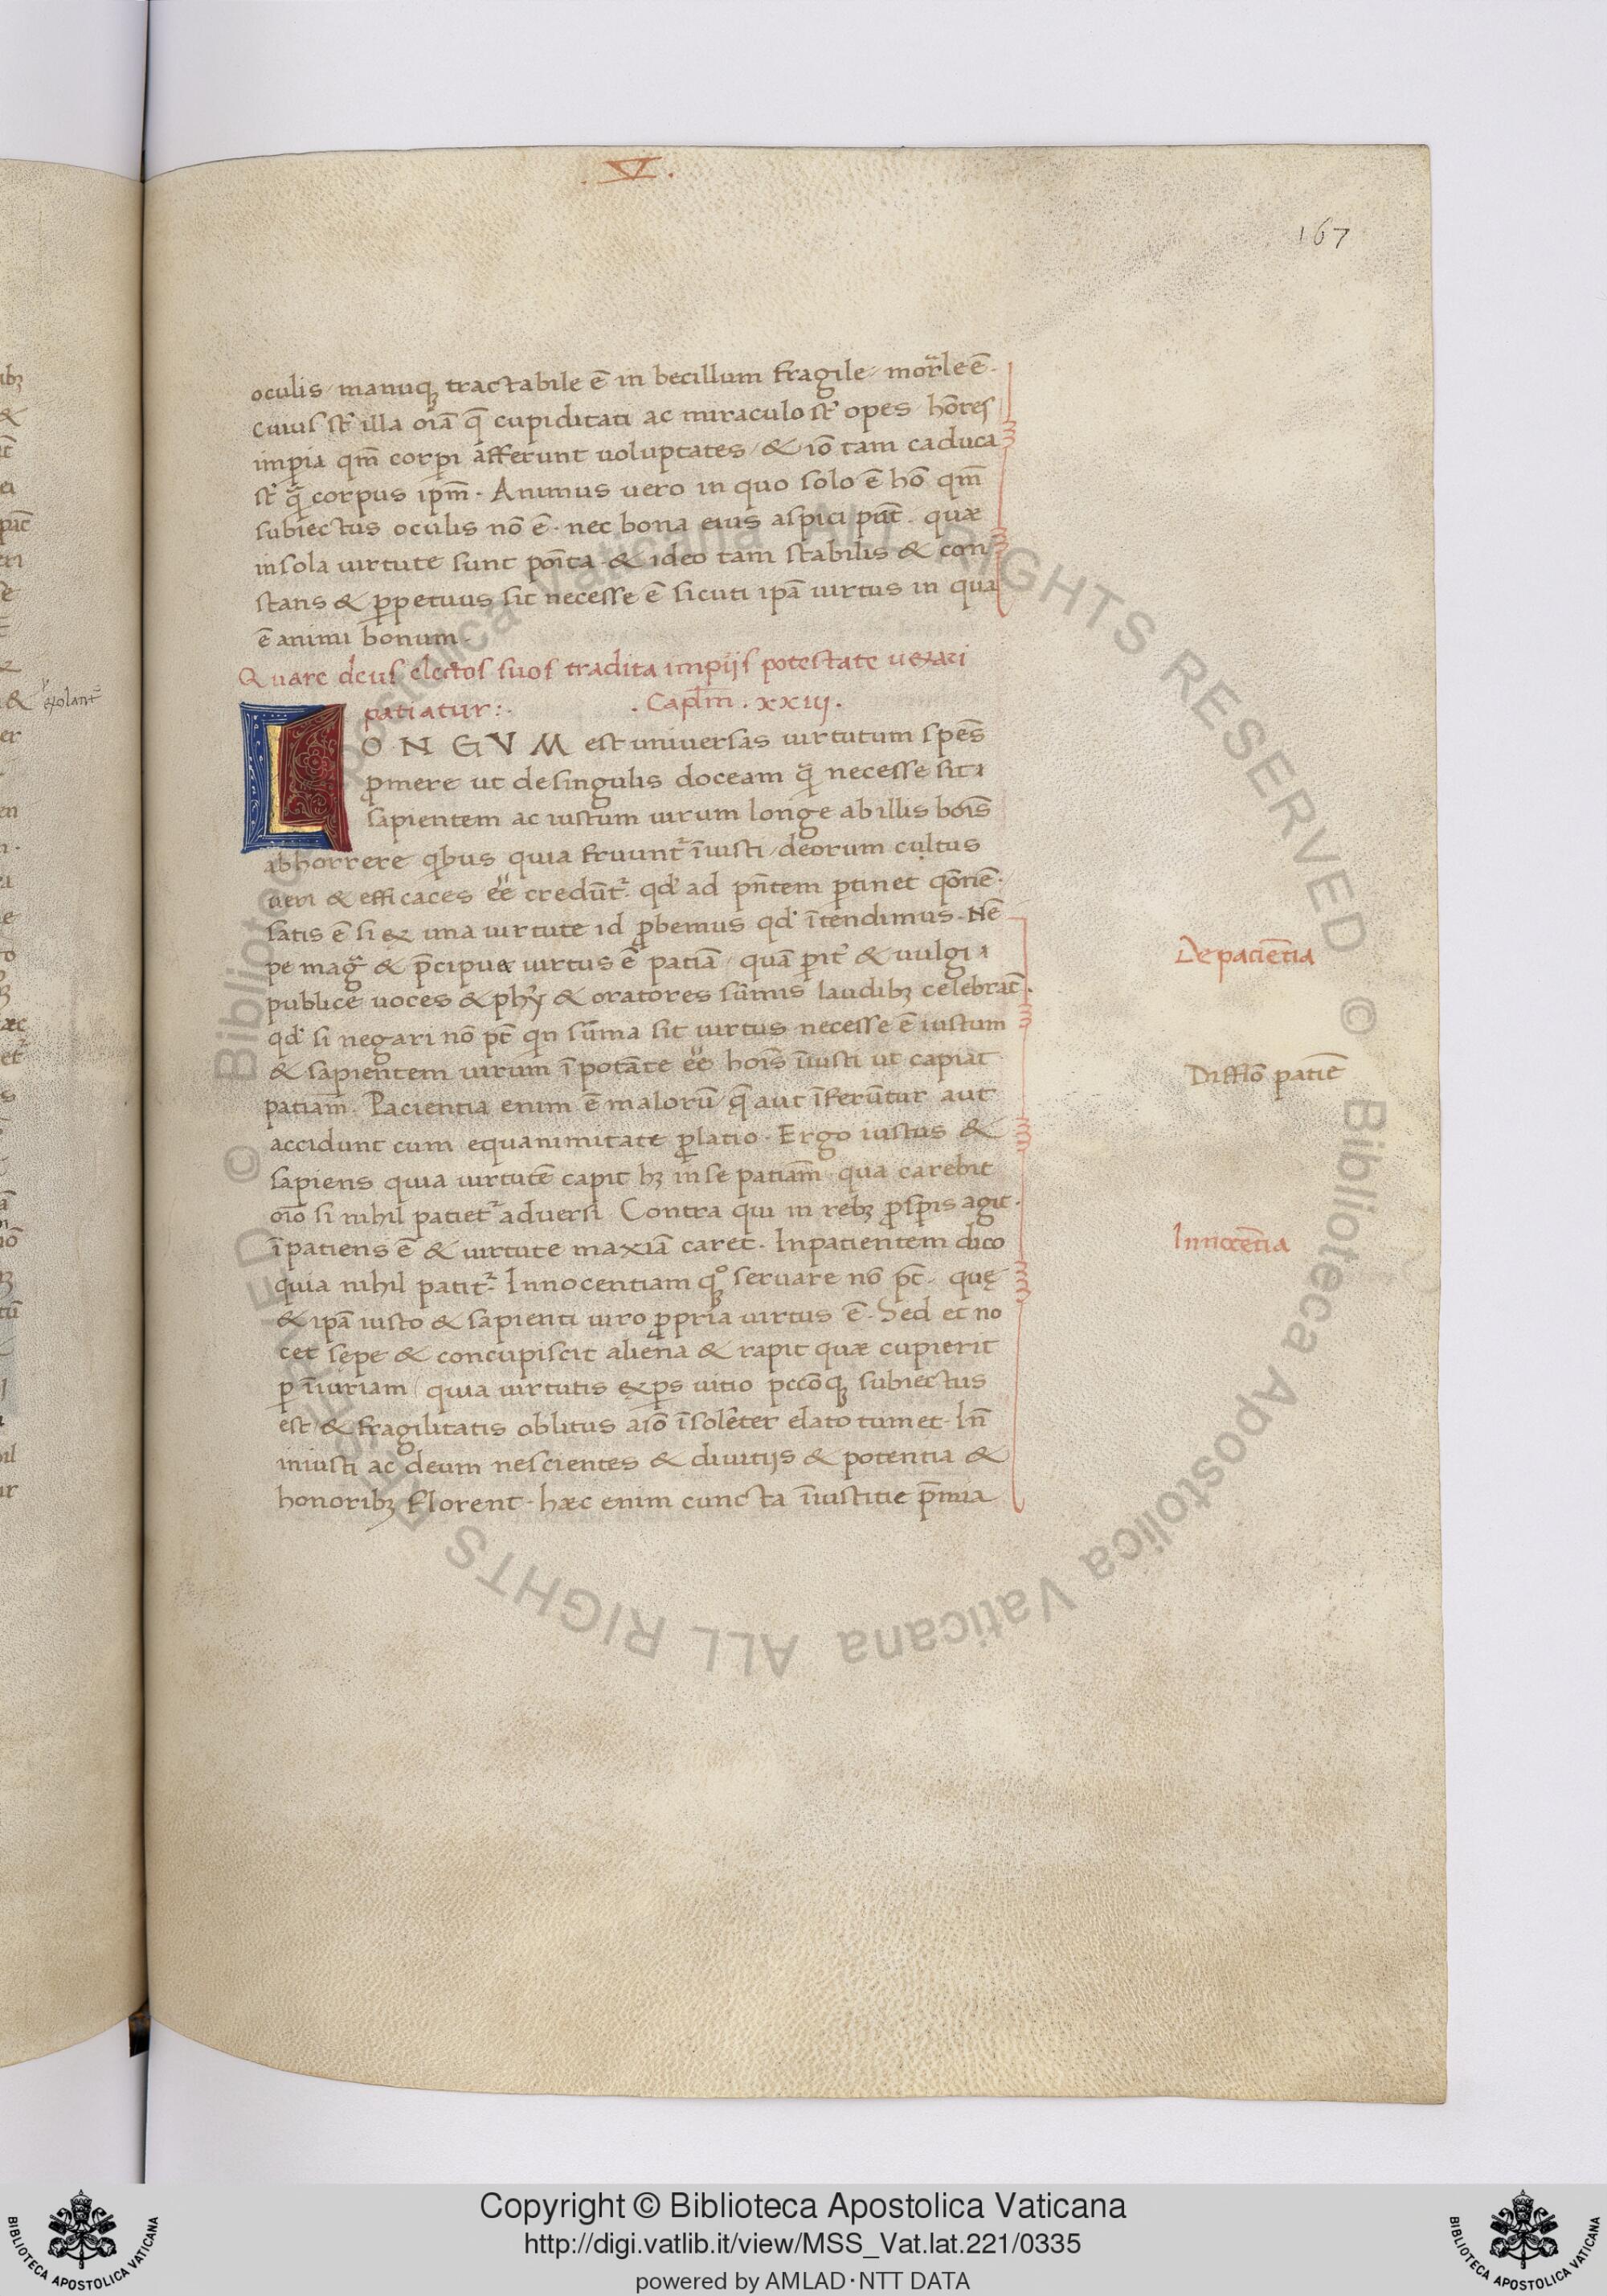 .V.
167
oculis / manuq; tractabile ē in becillum fragile / mor̃le ē.
cuius st̃ illa oĩa q̃ cupiditati ac miraculo st̃ opes hōres
impia qm̃ corpi afferunt uoluptates / & iō tam caduca
st̃ q̃ corpus ipm̃. Animus uero in quo solo ē hō qm̃
subiectus oculis nō ē. nec bona eius aspici pñt. quæ
in sola uirtute sunt poĩta. & ideo tam stabilis & con
stans & ꝑpetuus sit necesse ē sicuti ipā uirtus in qua
ē animi bonum.
Quare deus electos suos tradita impijs potestate uexari
patiatur:.
. Capl̃m . xxiij .
LONGVM est uniuersas uirtutum spēs
ꝓmere ut de singulis doceam q̃ necesse sit
sapientem ac iustum uirum longe ab illis boĩs
abhorrere qibus quia fruunt̃ ĩiusti / deorum cultus
ueri & efficaces eē̃ credūt̃. qd̃ ad pñtem ꝑtinet qōnē.
satis ē si ex una uirtute id ꝓbemus qd̃ ĩtendimus. Nē
pe mag̃ & p̃cipua uirtus ē patiā / quā ꝑit̃ & uulgi
publice uoces & phỹ & oratores sūmis laudib; celebrāt.
qd̃ si negari nō pt̃ qn sūma sit uirtus necesse ē iustum
& sapientem uirum ĩ potāte eē̃ hoĩs ĩiusti ut capiat
patiam̃. Pacientia enim ē malorū q̃ aut ĩferūtur aut
accidunt cum equanimitate ꝑlatio. Ergo iustus &
sapiens quia uirtutē capit h; in se patiam̃ qua carebit
oĩo si nihil patiet̃ aduersi. Contra qui in reb; ꝓsꝑis agit.
ĩpatiens ē & uirtute maxiā caret. Inpatientem dico
quia nihil patit̃. Innocentiam qº; seruare nō pt̃. quę
& ipā iusto & sapienti uiro ꝓpria uirtus ē. Sed et no
cet sepe & concupiscit aliena & rapit quæ cupierit
ꝑ ĩiuriam / quia uirtutis exꝑs uitio pccōq; subiectus
est / & fragilitatis oblitus aĩo ĩsolēter elato tumet. Iñ
iniusti ac deum nescientes & diuitijs & potentia &
honorib; florent. hæc enim cuncta ĩiustitie p̃mia
De paciētia
Diffiō patiē
Innocētia
explant̃
Copyright © Biblioteca Apostolica Vaticana
http://digi.vatlib.it/view/MSS_Vat.lat.221/0335
powered by AMLAD·NTT DATA
BIBLIOTECA APOSTOLICA VATICANA
BIBLIOTECA APOSTOLICA VATICANA
© Biblioteca Apostolica Vaticana ALL RIGHTS RESERVED © Biblioteca Apostolica Vaticana ALL RIGHTS RESERVED